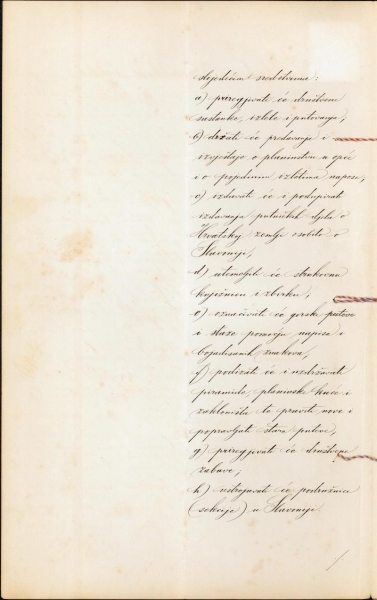 slijedećim sredstvima:
a) priregjivati će društvene
sastanke, izlete i putovanja;
b) držati će predavanja i
izvještaje o planinstvu u opće
i o pojedinim izletima napose;
c) izdavati će i podupirati
izdavanja putničkih djela o
Hrvatskoj zemlji osobito o
Slavoniji;
d) utemeljiti će strukovnu
knjižnicu i zbirku;
e) označivati će gorske puteve
i staze pomoću napisa i
bojadisanih znakova;
f) podizati će i uzdržavati
piramide, planinske kuće i
zakloništa te praviti nove i
popravljati stare puteve;
g) priregjivati će društvene
zabave;
h) ustrojavati će podružnice
(sekcije) u Slavoniji.